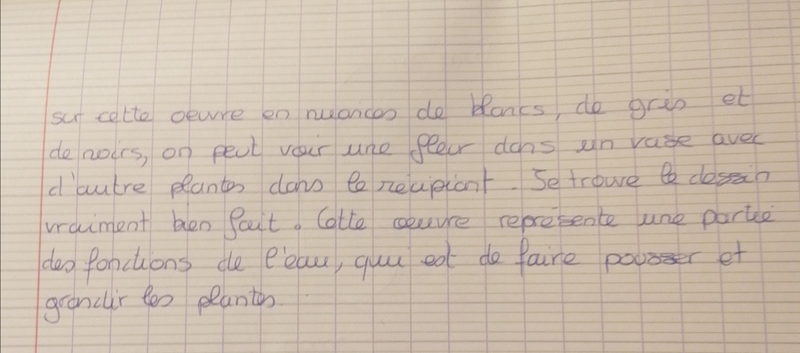 sur cette oeuvre en nuances de blancs, de gris et
de noirs, on peut voir une fleur dans un vase avec
d'autre plantes dans le récipiant. Je trouve le dessin
vraiment bien fait. Cette oeuvre représente une partie
des fonctions de l'eau, qui est de faire pousser et
grandir les plantes